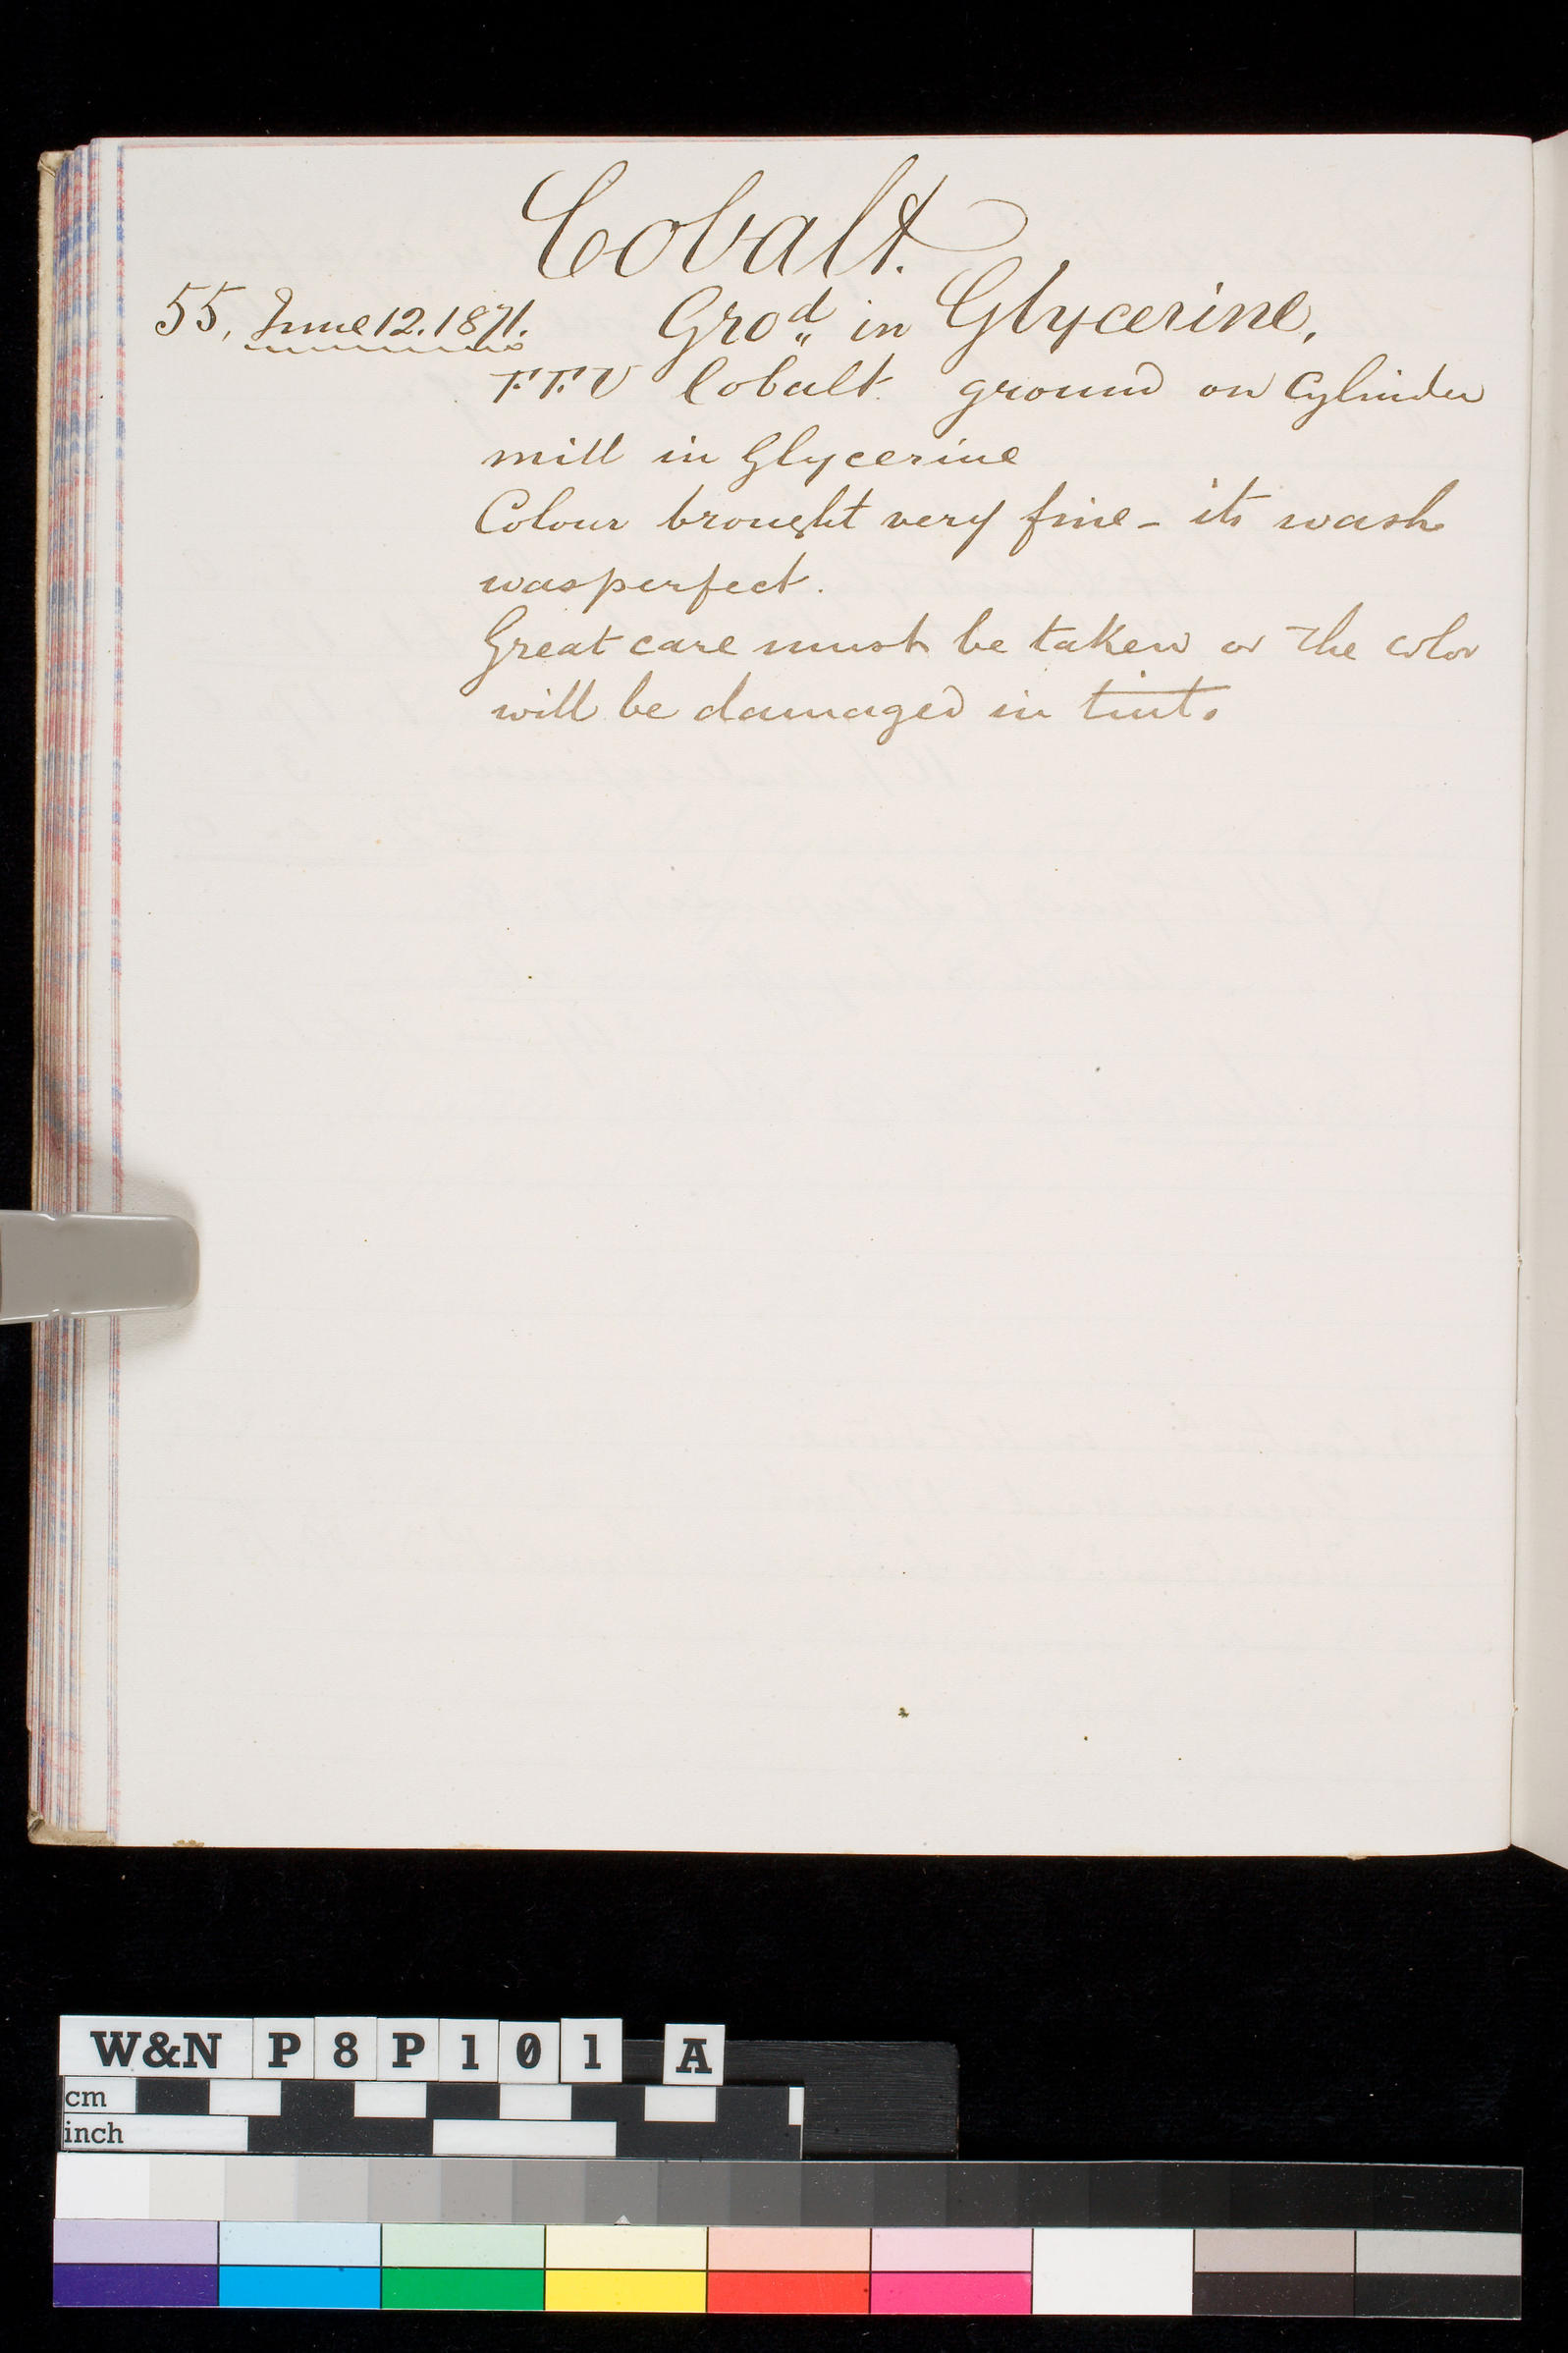 Cobalt.
55, June 12. 1871. Gro.d in Glycerine,
F.F.U Cobalt ground on Cylinder
mill in Glycerine
Colour brought very fine - its wash
was perfect.
Great care must be taken or the color
will be damaged in tint.
W&N P8P101 A
cm
inch